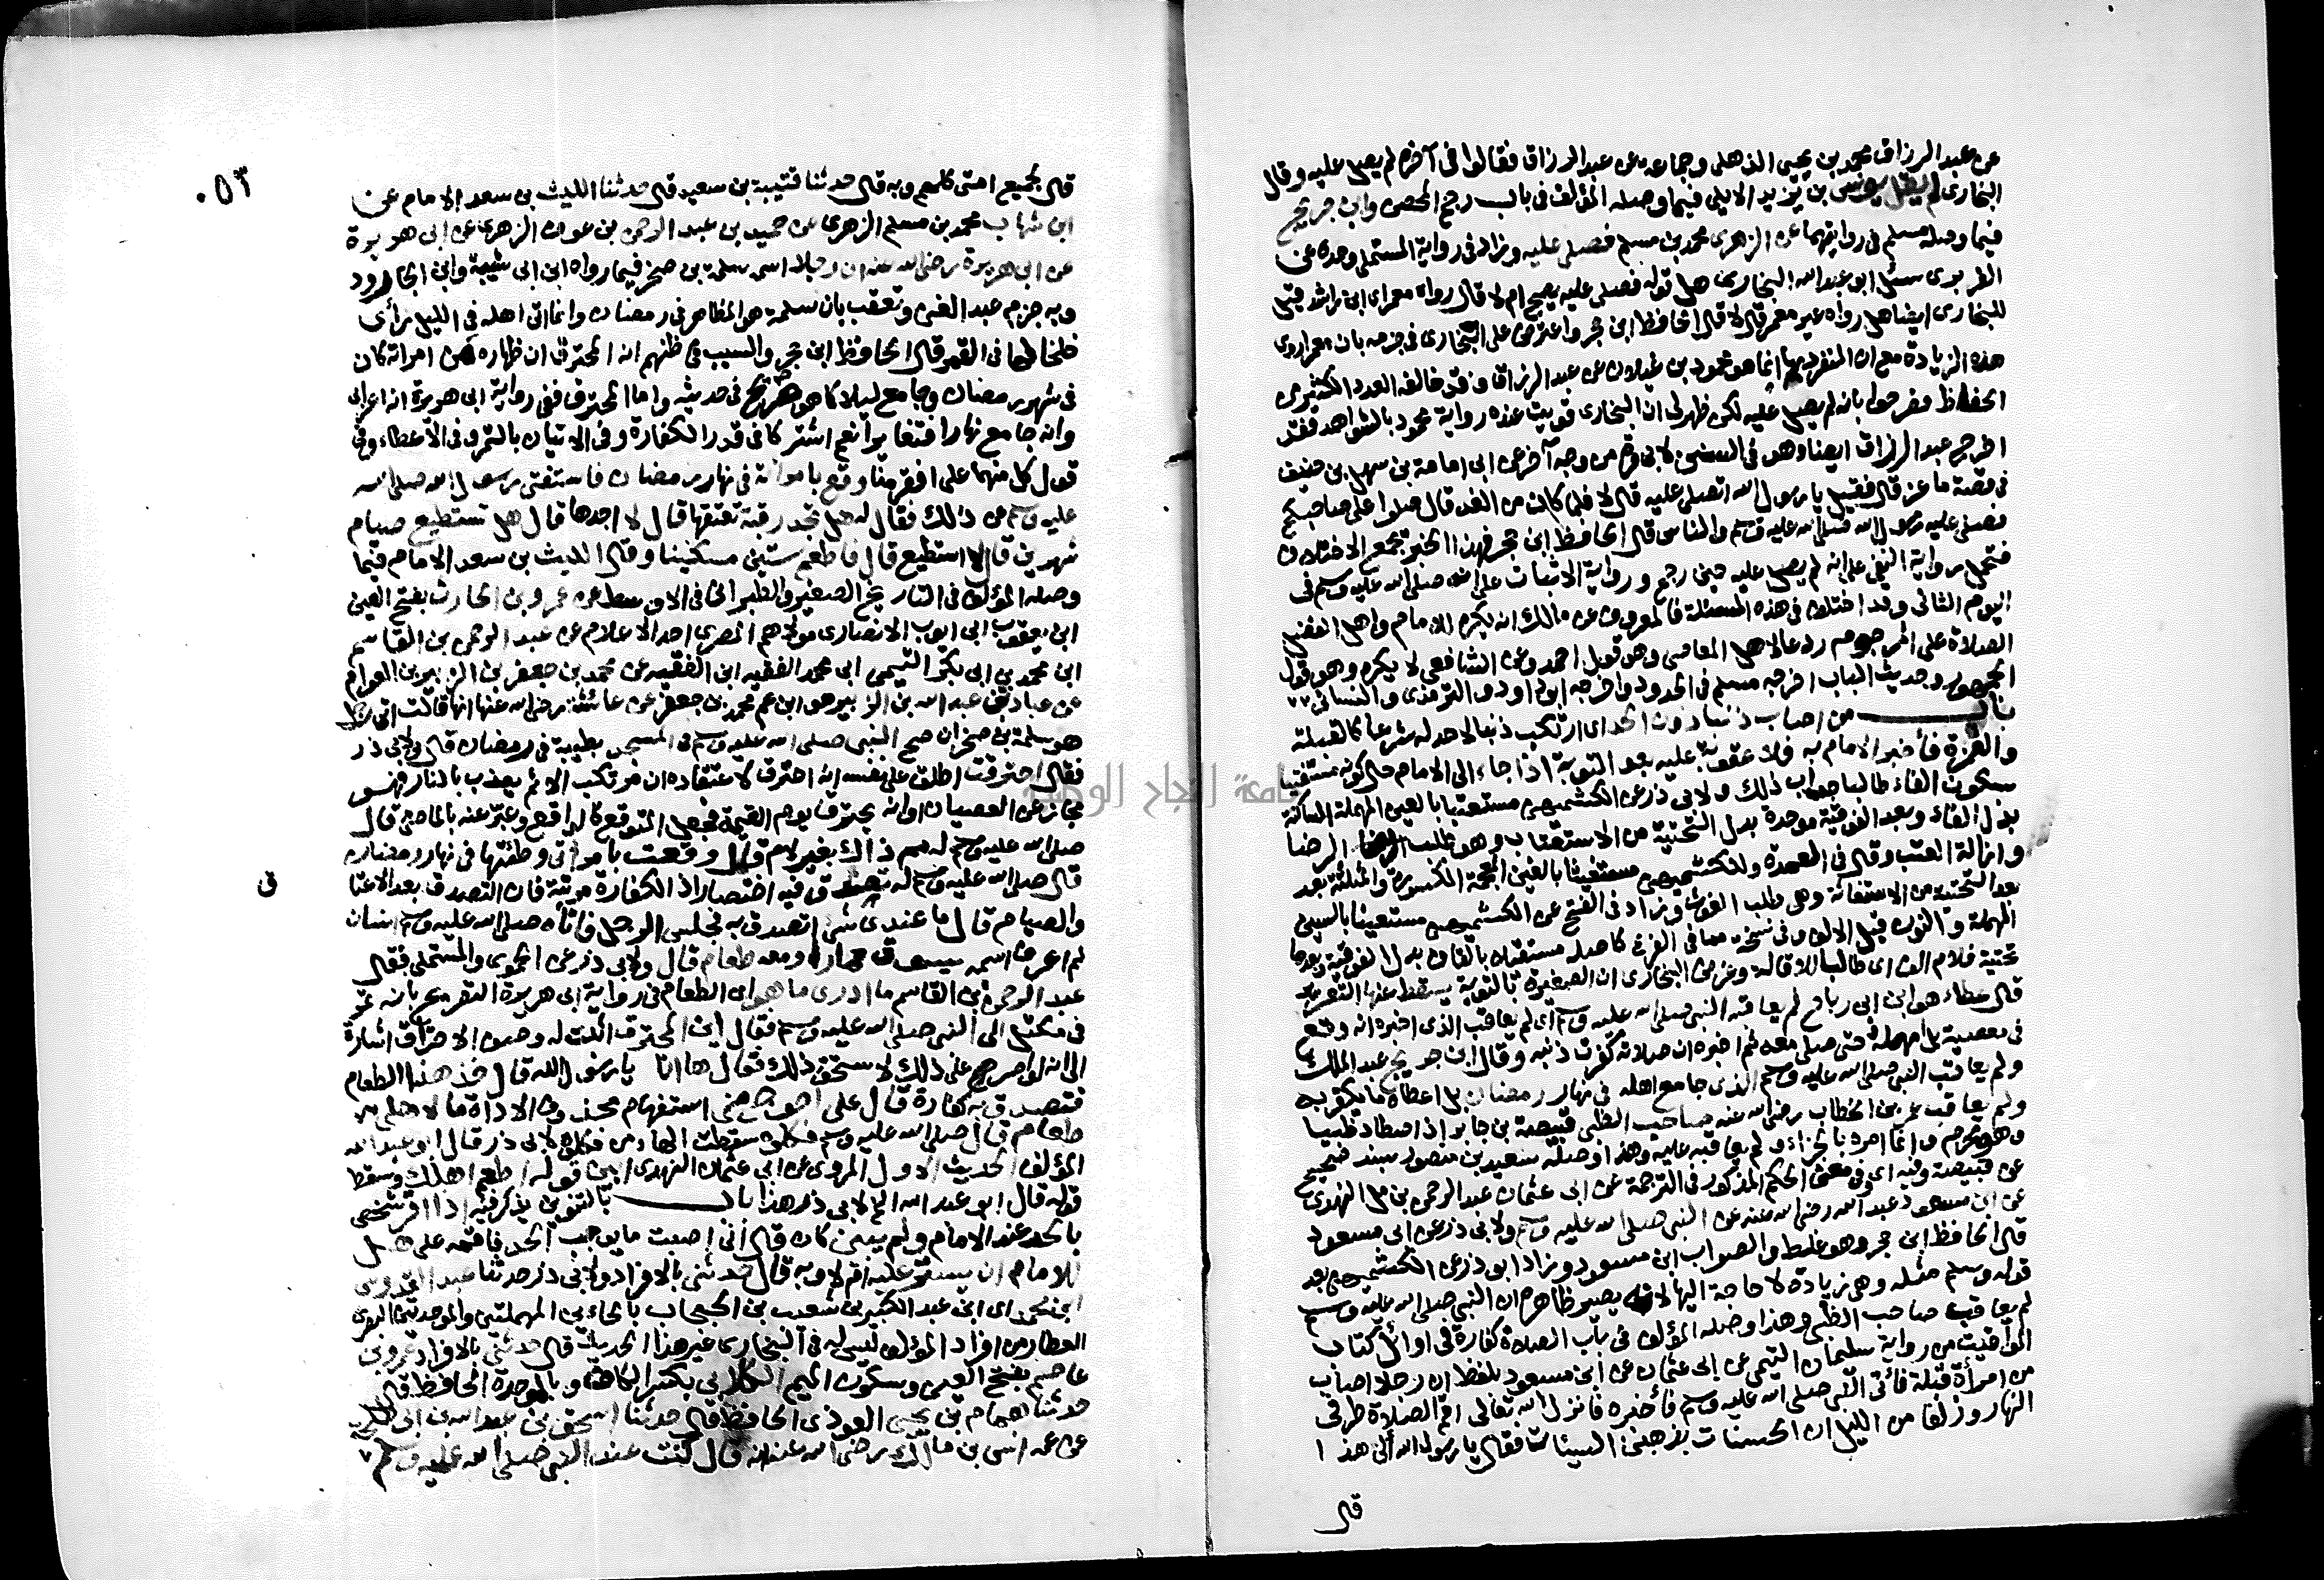 عن عبد الرزاق محمد بن يحيى الذهلي وجماعة عن عبد الرزاق فقالوا في آخره لم يصل عليه وقال
البخاري لم يقل يونس بن يزيد الايلي فيما وصله المؤلف في باب رجم المحصن وابن جريج
فيما وصله مسلم في روايتهما عن الزهري محمد بن مسلم فصلى عليه وزاد في رواية المستملي وحده عن
الفربري سئل ابو عبد الله البخاري هل قوله فصلى عليه يصح ام لا قال رواه معمر اى ابن راشد قيل
للبخاري ايضا هل رواه غير معمر قال لا قال الحافظ ابن حجر واعترض على البخاري في جزمه بان معمرا روى
هذه الزيادة مع ان المنفرد بها انما هو محمود بن غيلان عن عبد الرزاق وقد خالفه العدد الكثير من
الحفاظ فصرحوا بانه لم يصل عليه لكن ظهر لي ان البخاري قويت عنده رواية محمود بالشواهد فقد
اخرج عبد الرزاق ايضا وهو في السنن لابي قرة من وجه آخر عن ابي امامة بن سهل بن حنيف
في قصة ماعز قال فقيل يا رسول الله اتصلي عليه قال لا فلما كان من الغد قال صلوا على صاحبكم
فصلى عليه رسول الله صلى الله عليه وسلم والناس قال الحافظ ابن حجر فهذا الخبر يجمع الاختلاف
فتحمل رواية النفي على انه لم يصل عليه حين رجم ورواية الاثبات على انه صلى الله عليه وسلم في
اليوم الثاني وقد اختلف في هذه المسئلة فالمعروف عن مالك انه يكره للامام واهل الفضل
الصلاة على المرجوم ردعا لاهل المعاصي وهو قول احمد وعن الشافعي لا يكره وهو قول
الجمهور وحديث الباب اخرجه مسلم في الحدود واخرجه ابو داود والترمذي والنسائي
باب من اصاب ذنبا دون الحد اى ارتكب ذنبا لا حد له شرعا كالقبلة
والغمزة فأخبر الامام به فلا عقوبة عليه بعد التوبة اذا جاء الى الامام حال كونه مستفتيا
بسكون الفاء طالبا جواب ذلك ولابي ذر عن الكشميهني مستعتبا بالعين المهملة الساكنة
بدل الفاء وبعد الفوقية موحدة بدل التحتية من الاستعتاب وهو طلب الرضا
وازالة العتب وقال في العمدة وللكشميهني مستغيثا بالغين المعجمة المكسورة والمثلثة بعد
بعد التحتية من الاستغاثة وهي طلب الغوث وزاد في الفتح عن الكشميهني مستعينا بالسين
المهملة والنون قبل الالف وفي نسخة مما في الفرع كاصله مستقيلا بالقاف بدل الفوقية وبعدها
تحتية فلام الف اى طالبا للاقالة وغرض البخاري ان الصغيرة بالتوبة يسقط عنها التعزير
قال عطاء هو ابن ابي رباح لم يعاقبه النبي صلى الله عليه وسلم اى لم يعاقب الذي اخبره انه وقع
في معصية بل امهله حتى صلى معه ثم اخبره ان صلاته كفرت ذنبه وقال ابن جريج عبد الملك
ولم يعاقب النبي صلى الله عليه وسلم الذي جامع اهله في نهار رمضان بل اعطاه ما يكفر به
ولم يعاقب عمر بن الخطاب رضي الله عنه صاحب الظبي قبيصة بن جابر اذ اصطاد ظبيا
وهو محرم وانما امره بالجزاء ولم يعاقبه عليه وهذا وصله سعيد بن منصور بسند صحيح
عن قبيصة وفيه اى وفي معنى الحكم المذكور في الترجمة عن ابي عثمان عبد الرحمن بن مل النهدي
عن ابن مسعود عبد الله رضي الله عنه عن النبي صلى الله عليه وسلم ولابي ذر عن ابي مسعود
قال الحافظ ابن حجر وهو غلط والصواب ابن مسعود وزاد ابو ذر عن الكشميهني بعد
قوله وسلم مثله وهي زيادة لا حاجة اليها لانه يصير ظاهره ان النبي صلى الله عليه وسلم
لم يعاقب صاحب الظبي وهذا وصله المؤلف في باب الصلاة كفارة في اوائل كتاب
المواقيت من رواية سليمان التيمي عن ابي عثمان عن ابن مسعود بلفظ ان رجلا اصاب
من امرأة قبلة فأتى النبي صلى الله عليه وسلم فأخبره فانزل الله تعالى اقم الصلاة طرفي
النهار وزلفا من الليل ان الحسنات يذهبن السيئات فقال يا رسول الله ألي هذا
قال
٠٥٣
قال لجميع امتي كلهم وبه قال حدثنا قتيبة بن سعيد قال حدثنا الليث بن سعد الامام عن
ابن شهاب محمد بن مسلم الزهري عن حميد بن عبد الرحمن بن عوف الزهري عن ابي هريرة
عن ابي هريرة رضي الله عنه ان رجلا اسمه سلمة بن صخر فيما رواه ابن ابي شيبة وابن الجارود
وبه جزم عبد الغني وتعقب بان سلمة هو المظاهر في رمضان وانما اتى اهله في الليل رأى
خلخالها في القمر قال الحافظ ابن حجر والسبب في ظنهم انه المحترق ان ظهاره من امراته كان
في شهر رمضان وجامع ليلا كما هو صريح في حديثه واما المحترق ففي رواية ابي هريرة انه اعرابي
وانه جامع نهارا فتغايرا نعم اشتركا في قدر الكفارة وفي الاتيان بالتمر وفي الاعطاء وفي
قول كل منهما على افقر منا وقع بامرأته في نهار رمضان فاستفتى رسول الله صلى الله
عليه وسلم عن ذلك فقال له هل تجد رقبة تعتقها قال لا اجدها قال هل تستطيع صيام
شهرين قال لا استطيع قال فاطعم ستين مسكينا وقال الليث بن سعد الامام فيما
وصله المؤلف في التاريخ الصغير والطبراني في الاوسط عن عمرو بن الحارث بفتح العين
ابن يعقوب ابي ايوب الانصاري مولاهم المصري احد الاعلام عن عبد الرحمن بن القاسم
ابن محمد بن ابي بكر التيمي ابي محمد الفقيه ابن الفقيه عن محمد بن جعفر بن الزبير بن العوام
عن عباد بن عبد الله بن الزبير هو ابن عم محمد بن جعفر عن عائشة رضي الله عنها انها قالت اتى رجل
هو سلمة بن صخر ان صح النبي صلى الله عليه وسلم في المسجد بطيبة في رمضان قال ولابي ذر
فقال احترقت اطلق على نفسه انه احترق لاعتقاده ان مرتكب الاثم يعذب بالنار فهو
مجاز عن العصيان او انه يحترق يوم القيمة فجعل المتوقع كالواقع وعبر عنه بالماضي قال
صلى الله عليه وسلم له مم ذاك بغير لام قال وقعت بامرأتي وطئتها في نهار رمضان
قال صلى الله عليه وسلم له تصدق فيه اختصار اذ الكفارة مرتبة فان التصدق بعد الاعتا
ق
والصيام قال ما عندي شئ اتصدق به فجلس الرجل فاتاه صلى الله عليه وسلم انسان
لم اعرف اسمه يسوق حمارا ومعه طعام قال ولابي ذر عن الحموي والمستملي فقال
عبد الرحمن بن القاسم ما ادري ما هو اى الطعام في رواية ابي هريرة التصريح بانه تمر
في مكتل الى النبي صلى الله عليه وسلم فقال اين المحترق اثبت له وصف الاحتراق اشارة
الى انه لو اصر على ذلك لاستحق ذلك فقال ها انا يا رسول الله قال خذ هذا الطعام
فتصدق به كفارة قال على احوج مني استفهام محذوف الاداة ما لاهلي
طعام قال صلى الله عليه وسلم فكلوه سقطت الهاء من فكلوه لابي ذر قال ابو عبد الله
المؤلف الحديث الاول المروي عن ابي عثمان النهدي ابين قوله اطعم اهلك وسقط
قوله قال ابو عبد الله الخ لابي ذر هذا باب بالتنوين يذكر فيه اذا اقر شخص
بالحد عند الامام ولم يبين كان قال اني اصبت ما يوجب الحد فاقمه علي هل
للامام ان يستر عليه ام لا وبه قال حدثني بالافراد ولابي ذر حدثنا عبد القدوس
ابن محمد اى ابن عبد الكبير بن شعيب بن الحبحاب بالحاءين المهملتين والموحدتين البصري
العطار من افراد المؤلف ليس له في البخاري غير هذا الحديث قال حدثني بالافراد عمرو بن
عاصم بفتح العين وسكون الميم الكلابي بكسر الكاف وبالموحدة الحافظ قال
حدثنا همام بن يحيى العوذي الحافظ قال حدثنا اسحق بن عبد الله بن ابي طلحة
عن عمه انس بن مالك رضي الله عنه انه قال كنت عند النبي صلى الله عليه وسلم
جامعة النجاح الوطنية